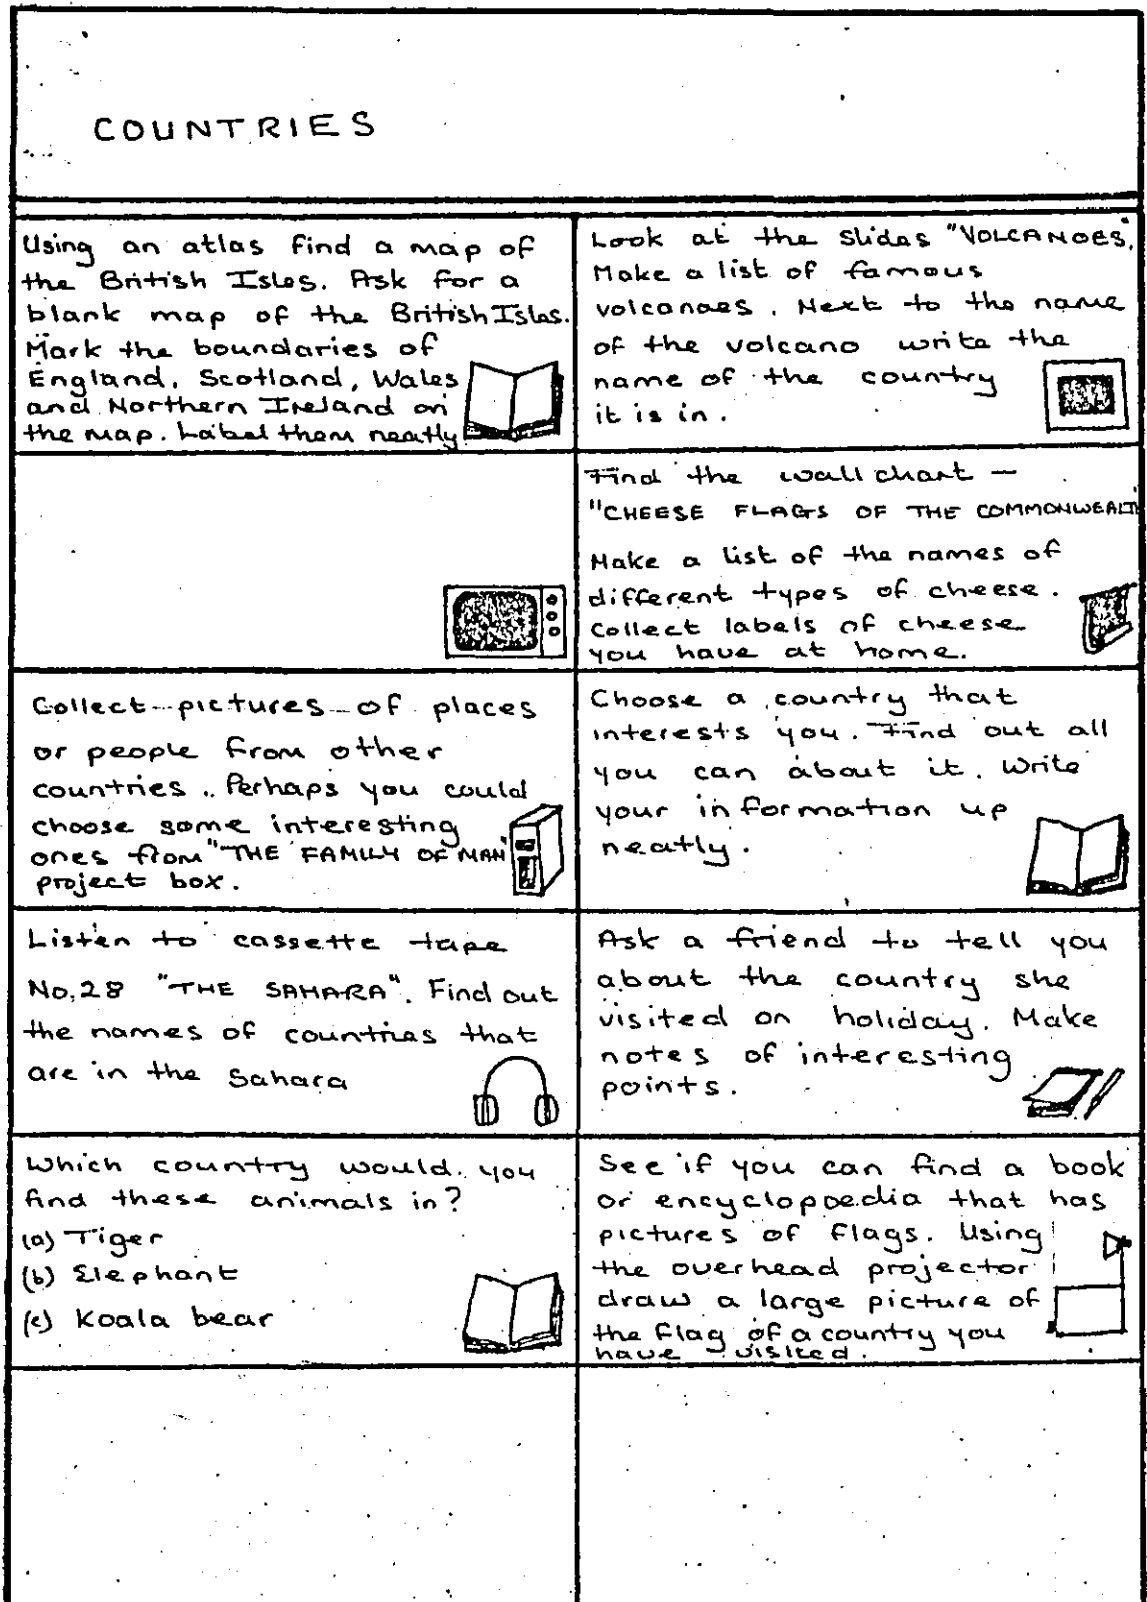 COUNTRIES
Using an atlas find a map of
the British Isles. Ask for a
blank map of the British Isles.
Mark the boundaries of
England, Scotland, Wales
and Northern Ireland on
the map. Label them neatly
Look at the slides "VOLCANOES".
Make a list of famous
volcanoes. Next to the name
of the volcano write the
name of the country
it is in.
Find the wall chart —
"CHEESE FLAGS OF THE COMMONWEALT
Make a list of the names of
different types of cheese.
Collect labels of cheese
you have at home.
Collect pictures of places
or people from other
countries. Perhaps you could
choose some interesting
ones from "THE FAMILY OF MAN"
project box.
Choose a country that
interests you. Find out all
you can about it. Write
your information up
neatly.
Listen to cassette tape
No.28 "THE SAHARA". Find out
the names of countries that
are in the Sahara
Ask a friend to tell you
about the country she
visited on holiday. Make
notes of interesting
points.
Which country would you
find these animals in?
(a) Tiger
(b) Elephant
(c) Koala bear
See if you can find a book
or encyclopoedia that has
pictures of flags. Using
the overhead projector
draw a large picture of
the flag of a country you
have visited.